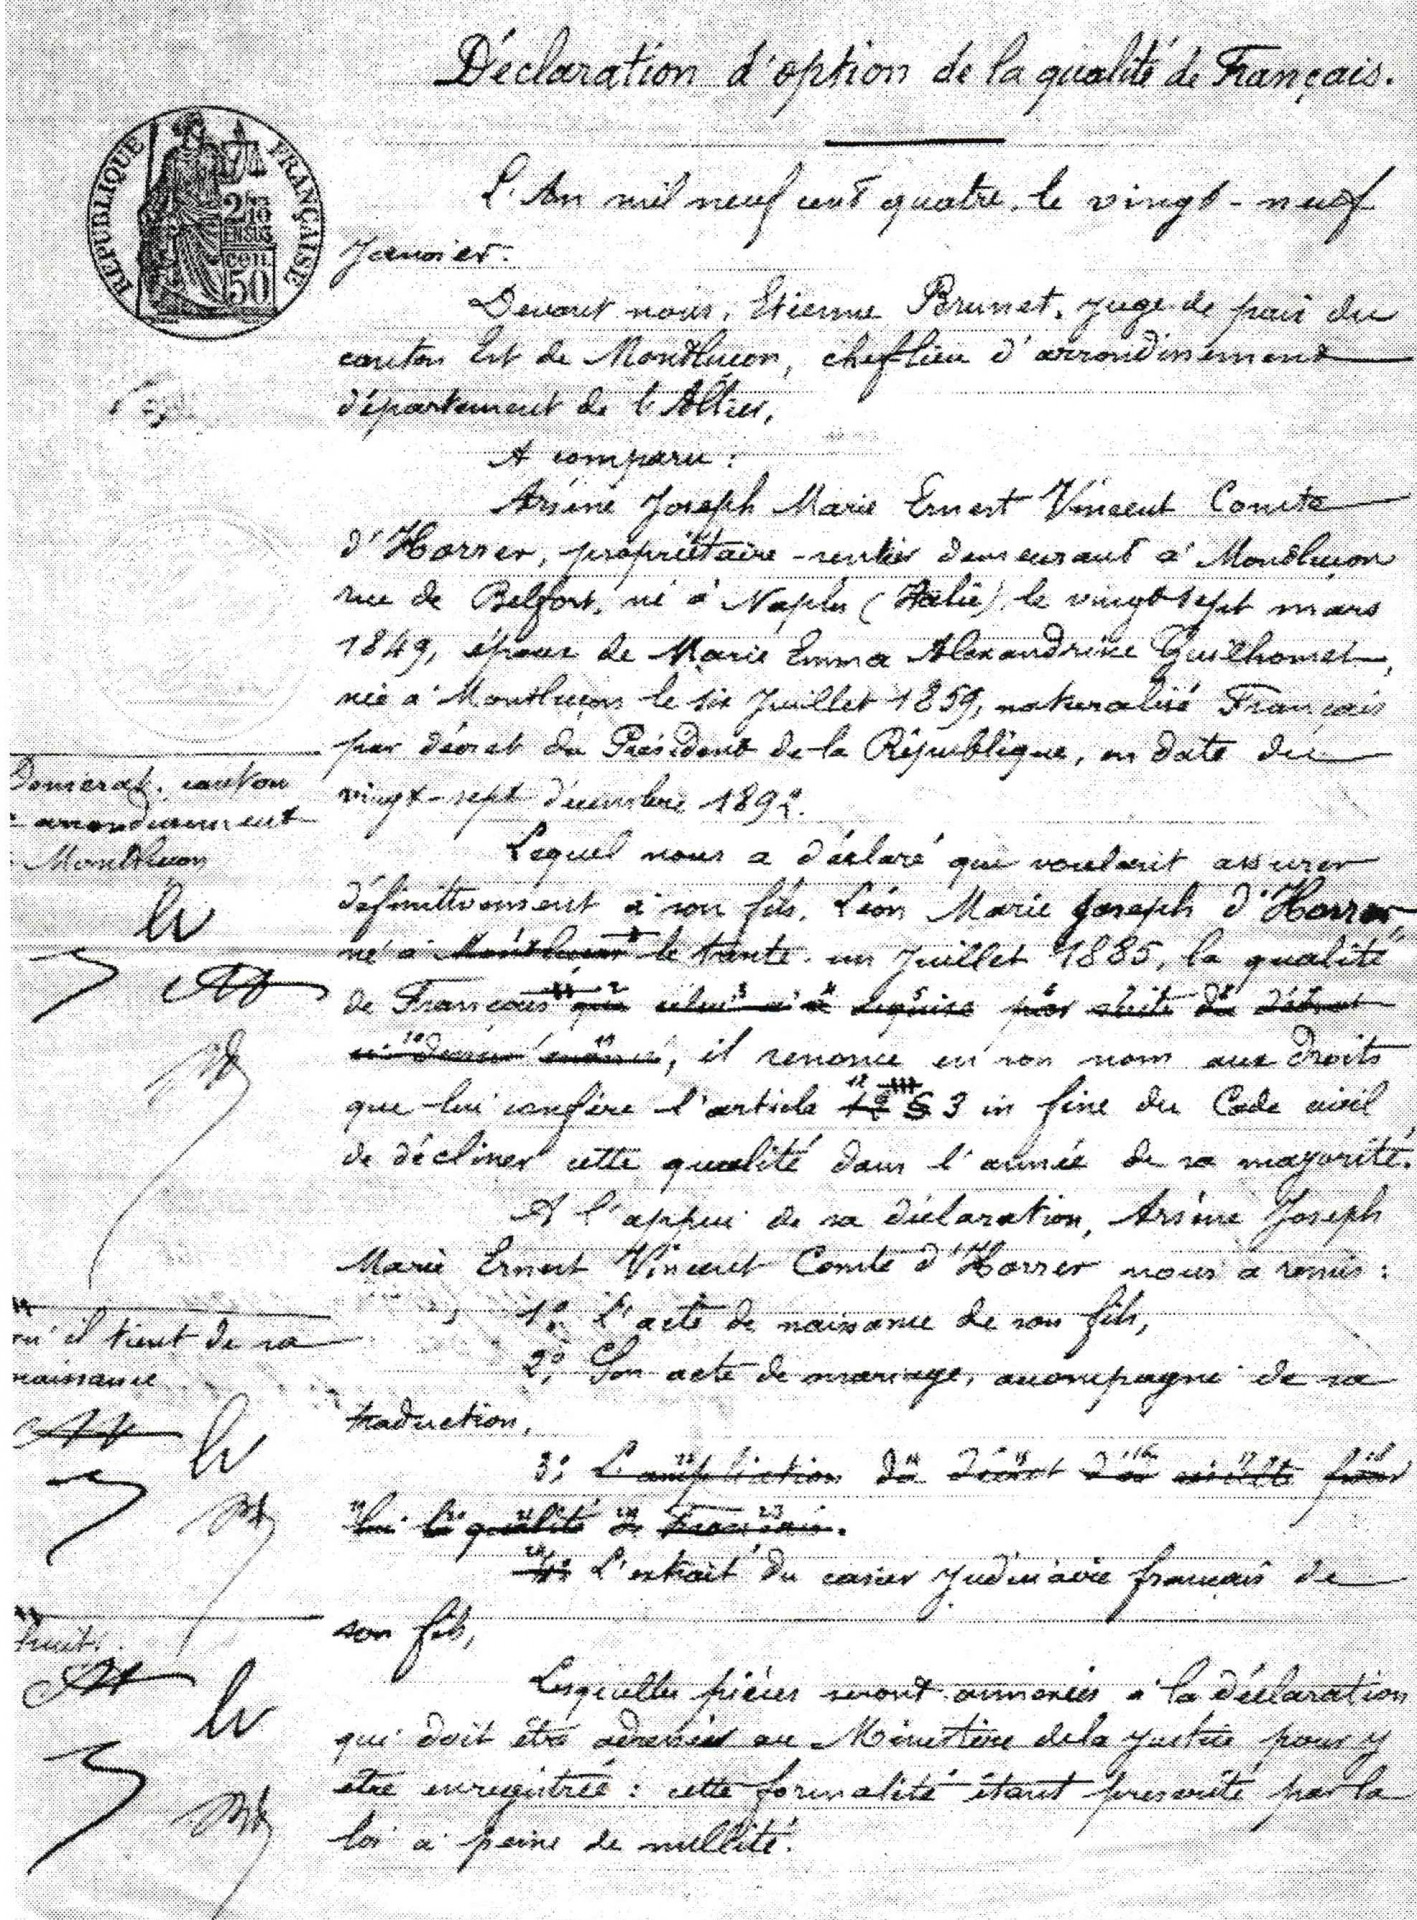 Déclaration d'option de la qualité de Français.
RÉPUBLIQUE FRANÇAISE
2/10
EN SUS
cen.
50
L'An mil neuf cent quatre, le vingt-neuf
Janvier.
Devant nous, Etienne Brunet, juge de paix du
canton Est de Montluçon, chef-lieu d'arrondissement
département de l'Allier,
A comparu :
Arsène Joseph Marie Ernest Vincent Comte
d'Horrer, propriétaire-rentier demeurant à Montluçon
rue de Belfort, né à Naples (Italie), le vingt-sept mars
1849, époux de Marie Emma Alexandrine Guilhomet,
née à Montluçon le six Juillet 1859, naturalisé Français
par décret du Président de la République, en date du
vingt-sept décembre 1892.
Domérat, canton
arrondissement
Montluçon
Lequel nous a déclaré que voulant assurer
définitivement à son fils, Léon Marie Joseph d'Horrer,
né à Montluçon le trente-un Juillet 1885, la qualité
de Français que celui-ci a acquise par suite du décret
ci-dessus énoncé, il renonce en son nom aux droits
que lui confère l'article 12 § 3 in fine du Code civil
de décliner cette qualité dans l'année de sa majorité.
A l'appui de sa déclaration, Arsène Joseph
Marie Ernest Vincent Comte d'Horrer nous a remis :
1° L'acte de naissance de son fils,
qu'il tient de sa
naissance
2° Son acte de mariage, accompagné de sa
traduction,
3° L'ampliation du décret qui résulte pour
lui la qualité de Français.
4° L'extrait du casier judiciaire français de
son fils,
huit
Lesquelles pièces seront annexées à la déclaration
qui doit être adressée au Ministère de la Justice pour y
être enregistrée : cette formalité étant prescrite par la
loi à peine de nullité.